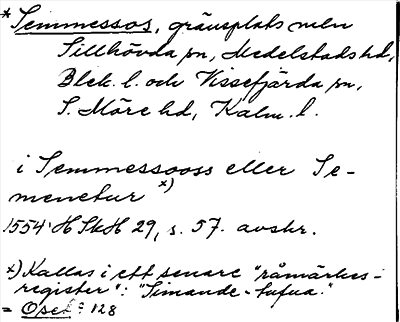 * Semmessos, gränsplats mln
Sillhövda sn, Medelstads hd,
Blek. l. och Vissefjärda sn,
S. Möre hd, Kalm. l.
i Semmessooss eller Se-
menetur x)
1554 HSkH 29, s. 57. avskr.
x) Kallas i ett senare "råmärkes-
register": "Simande-tufua."
= Oset: 128